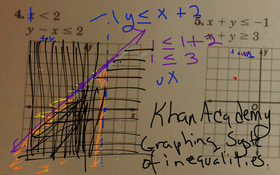 4. x < 2
y − x ≤ 2
−1y ≤ x + 2
1 ≤ 1 + 2
1 ≤ 3
5. x + y ≤ −1
x ≥ 3
Khan Academy
Graphing Syste
of inequalities.